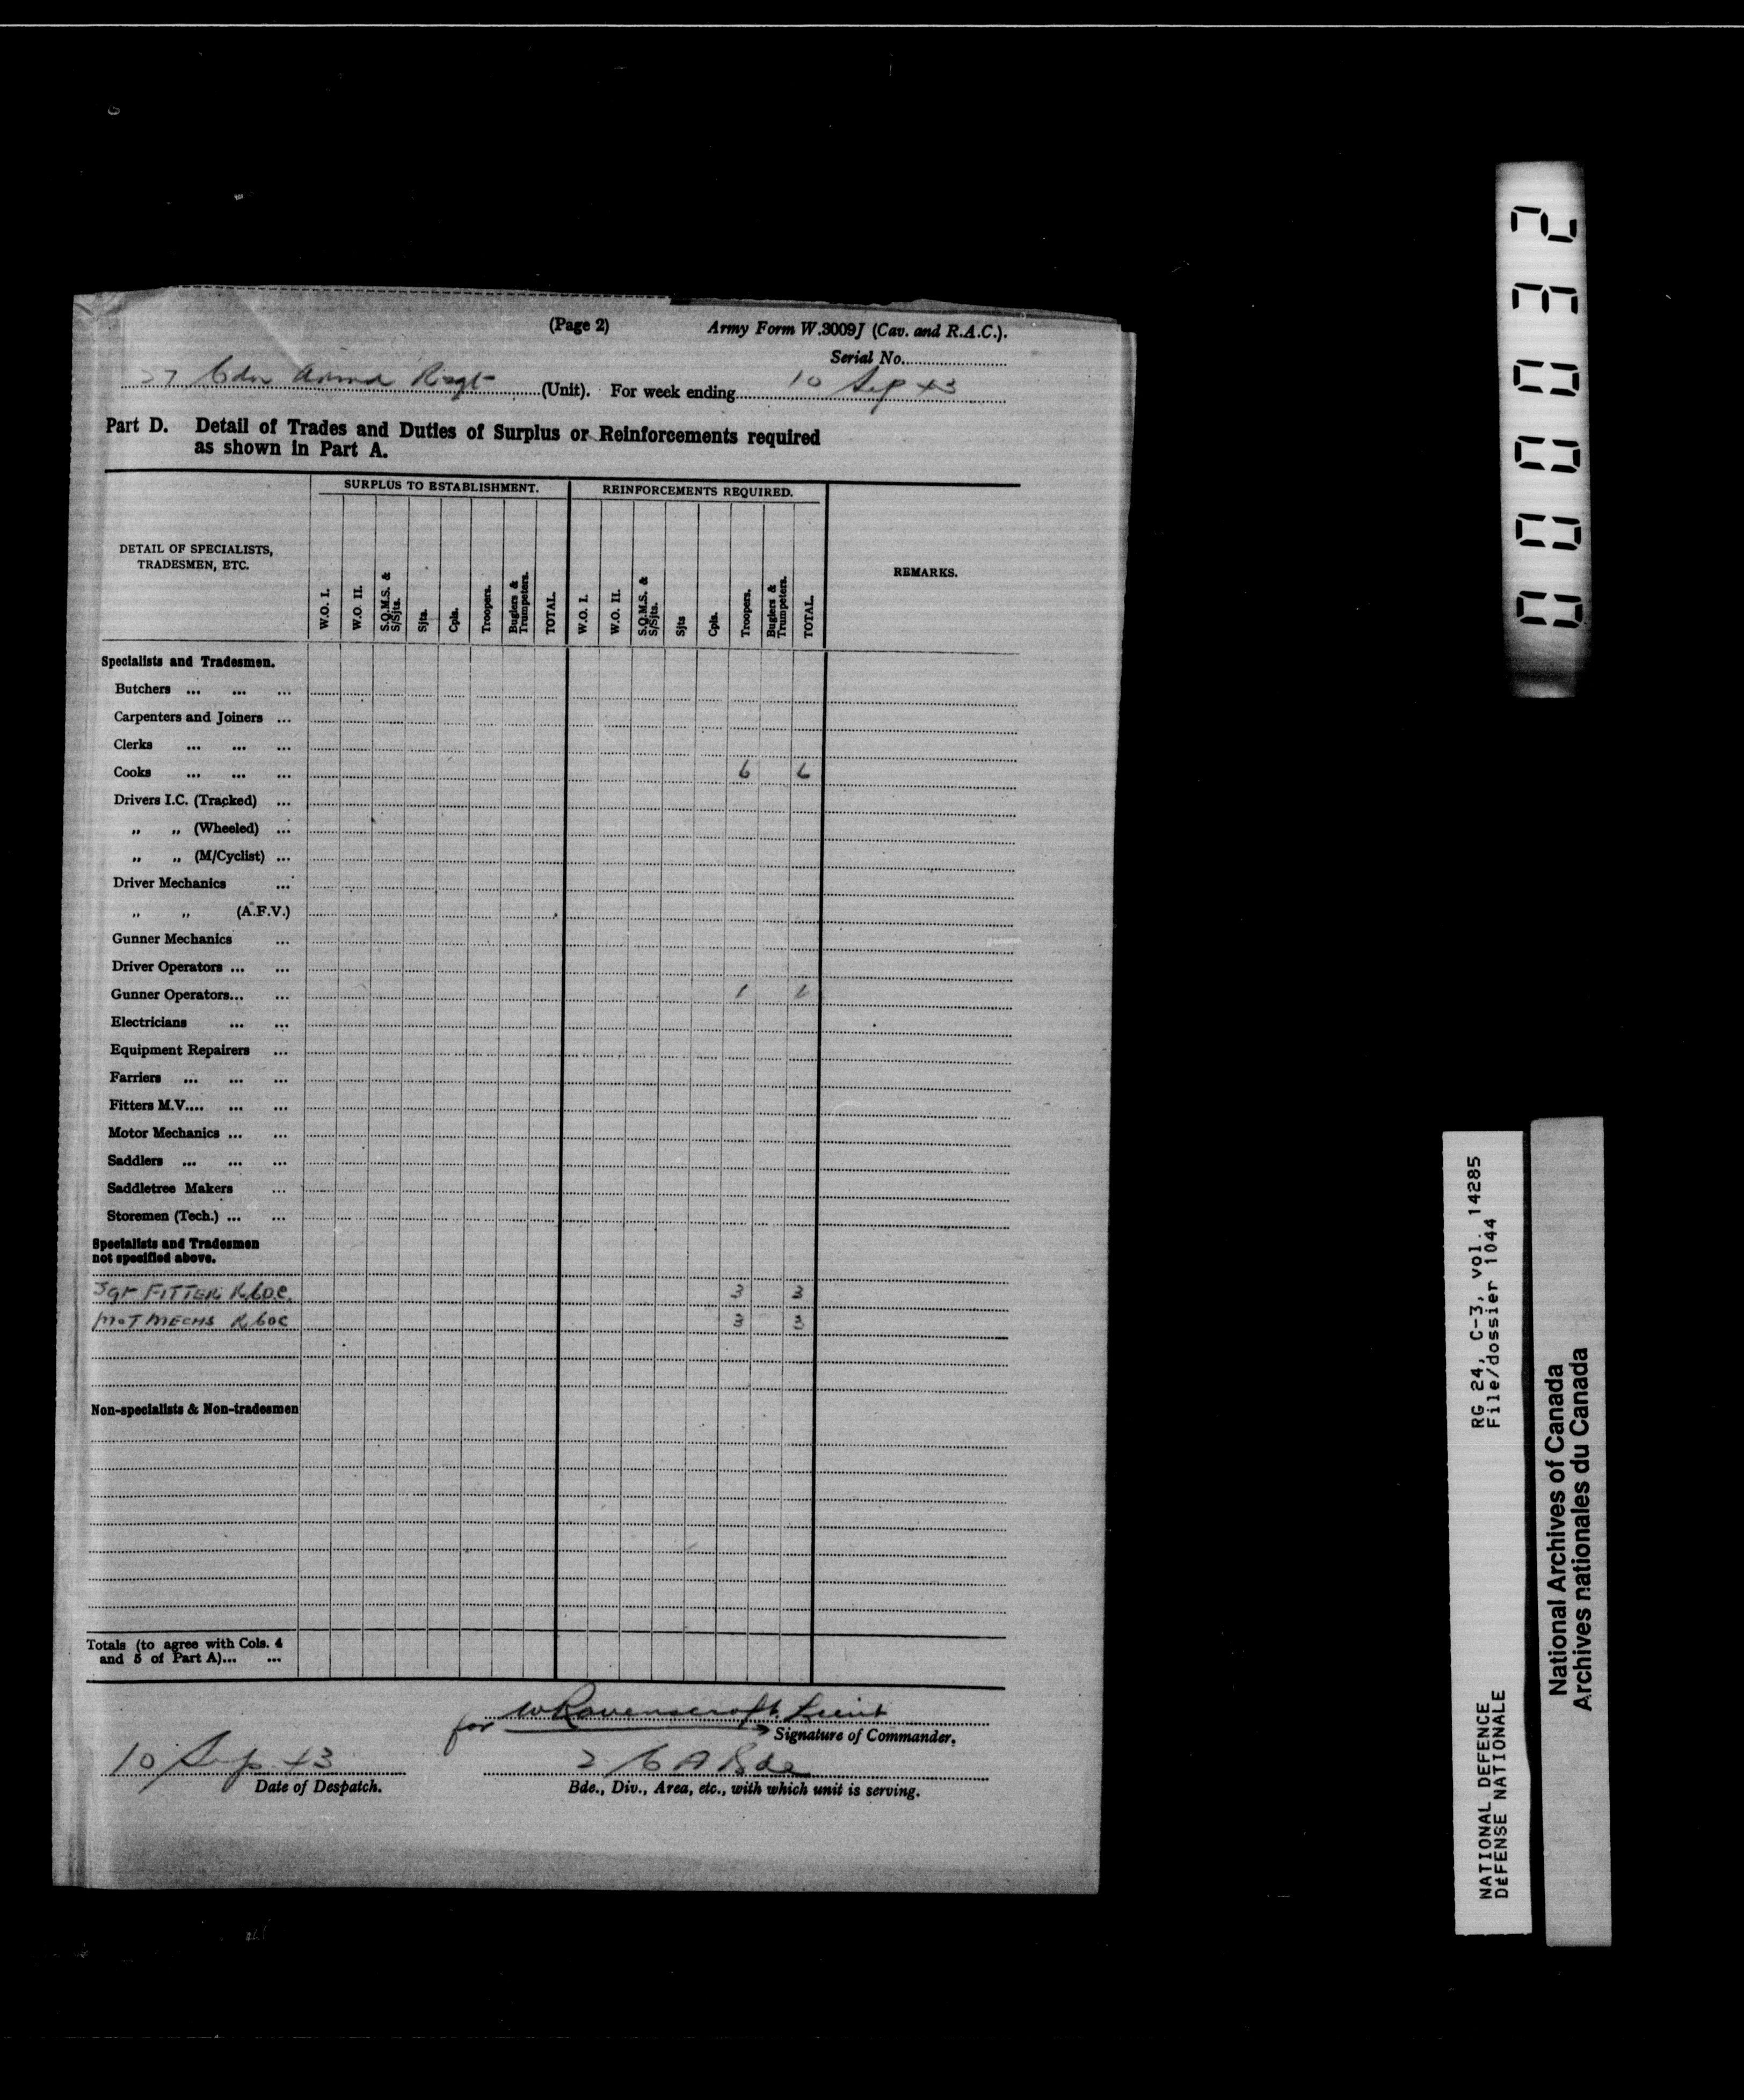 (Page 2) Army Form W.3009J (Cav. and R.A.C.).
Serial No.
27 Cdn Armd Regt (Unit). For week ending 10 Sep 43
Part D. Detail of Trades and Duties of Surplus or Reinforcements required
as shown in Part A.
SURPLUS TO ESTABLISHMENT. REINFORCEMENTS REQUIRED.
DETAIL OF SPECIALISTS,
TRADESMEN, ETC.
W.O. I. W.O. II. S.Q.M.S. & S/Sjts. Sjts. Cpls. Troopers. Buglers & Trumpeters. TOTAL. W.O. I. W.O. II. S.Q.M.S. & S/Sjts. Sjts Cpls. Troopers. Buglers & Trumpeters. TOTAL.
REMARKS.
Specialists and Tradesmen.
Butchers ... ... ...
Carpenters and Joiners ...
Clerks ... ... ...
Cooks ... ... ... 6 6
Drivers I.C. (Tracked) ...
„ „ (Wheeled) ...
„ „ (M/Cyclist) ...
Driver Mechanics ...
„ „ (A.F.V.)
Gunner Mechanics ...
Driver Operators ... ...
Gunner Operators... ... 1 1
Electricians ... ...
Equipment Repairers ...
Farriers ... ... ...
Fitters M.V.... ... ...
Motor Mechanics ... ...
Saddlers ... ... ...
Saddletree Makers ...
Storemen (Tech.) ... ...
Specialists and Tradesmen
not specified above.
Sgt FITTER RCOC. 3 3
MOT MECHS RCOC 3 3
Non-specialists & Non-tradesmen
Totals (to agree with Cols. 4
and 5 of Part A)... ...
for W Ravenscroft Lieut
Signature of Commander.
10 Sep 43 2 C A Bde
Date of Despatch. Bde., Div., Area, etc., with which unit is serving.
000032
RG 24, C-3, vol. 14285
File/dossier 1044
NATIONAL DEFENCE
DÉFENSE NATIONALE
National Archives of Canada
Archives nationales du Canada